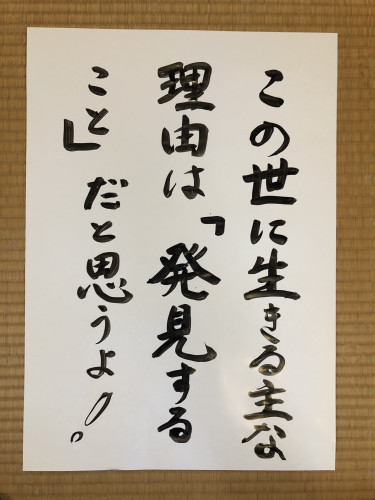 この世に生きる主な
理由は「発見する
こと」だと思うよ!。